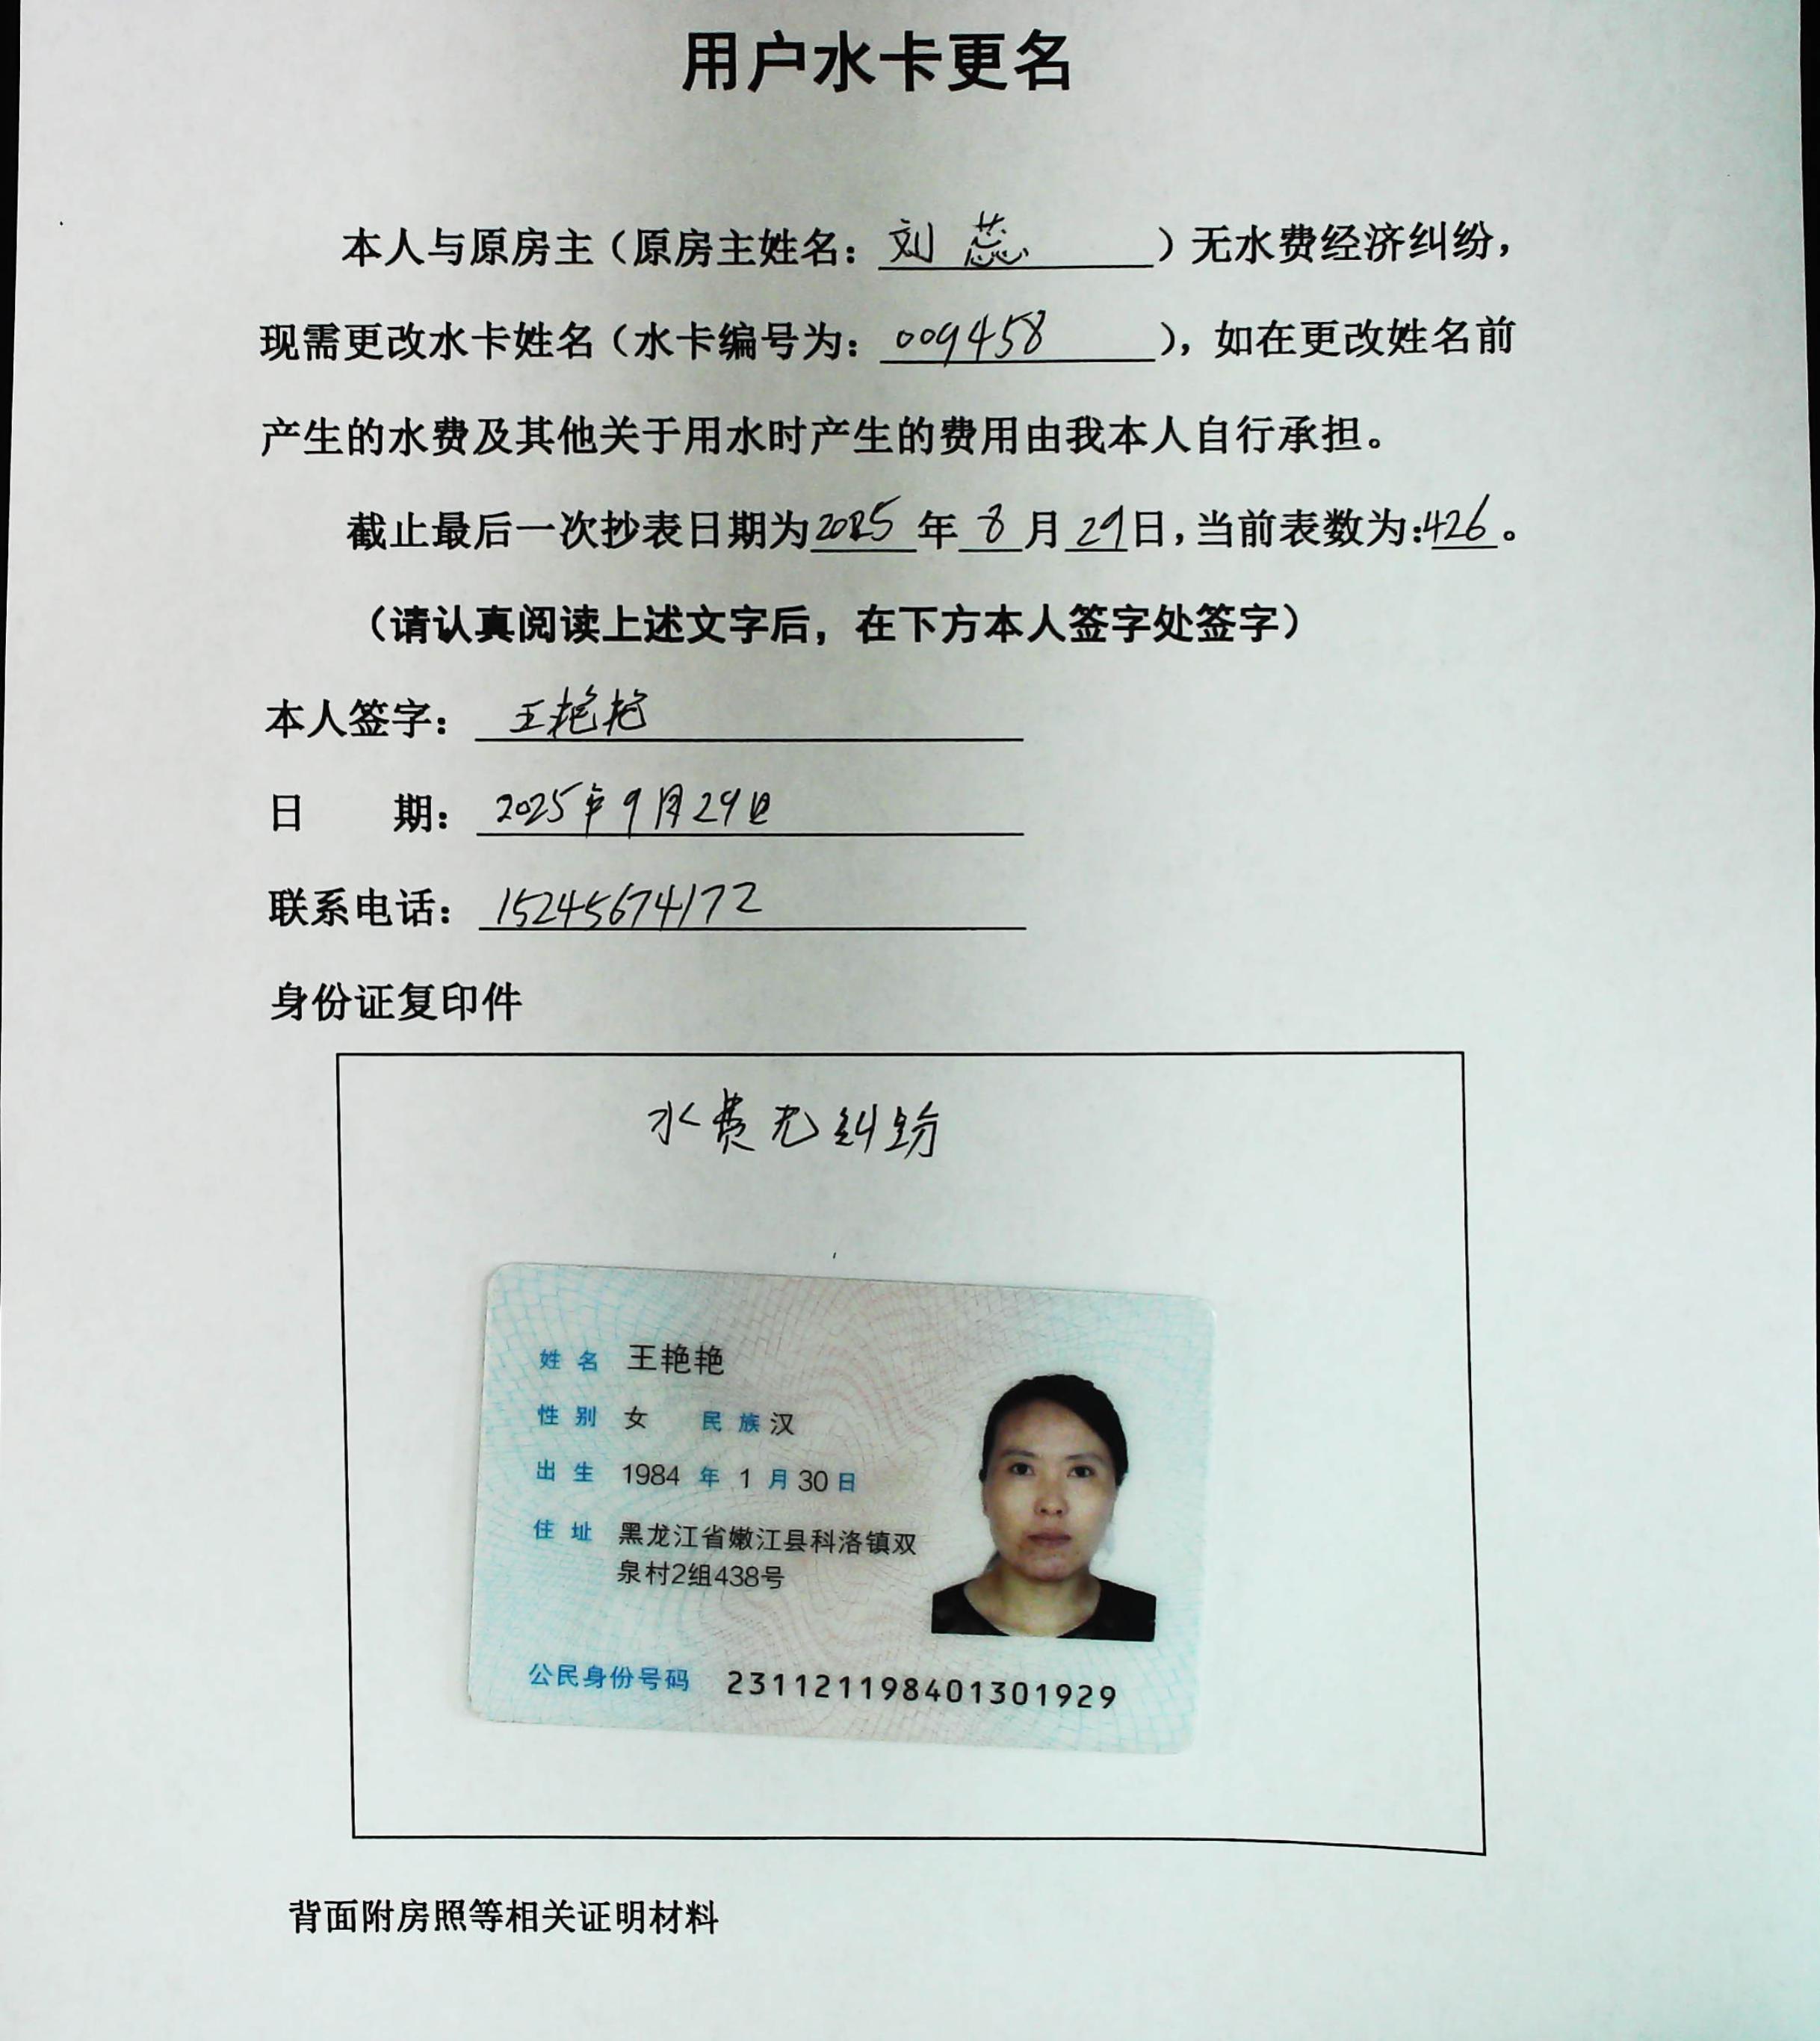 用户水卡更名
本人与原房主（原房主姓名：刘蕊）无水费经济纠纷，
现需更改水卡姓名（水卡编号为：009458），如在更改姓名前
产生的水费及其他关于用水时产生的费用由我本人自行承担。
截止最后一次抄表日期为2025年8月29日，当前表数为:426。
（请认真阅读上述文字后，在下方本人签字处签字）
本人签字：王艳艳
日 期：2025年9月29日
联系电话：15245674172
身份证复印件
水费无纠纷
姓名 王艳艳
性别 女 民族 汉
出生 1984 年 1 月 30 日
住址 黑龙江省嫩江县科洛镇双
泉村2组438号
公民身份号码 231121198401301929
背面附房照等相关证明材料